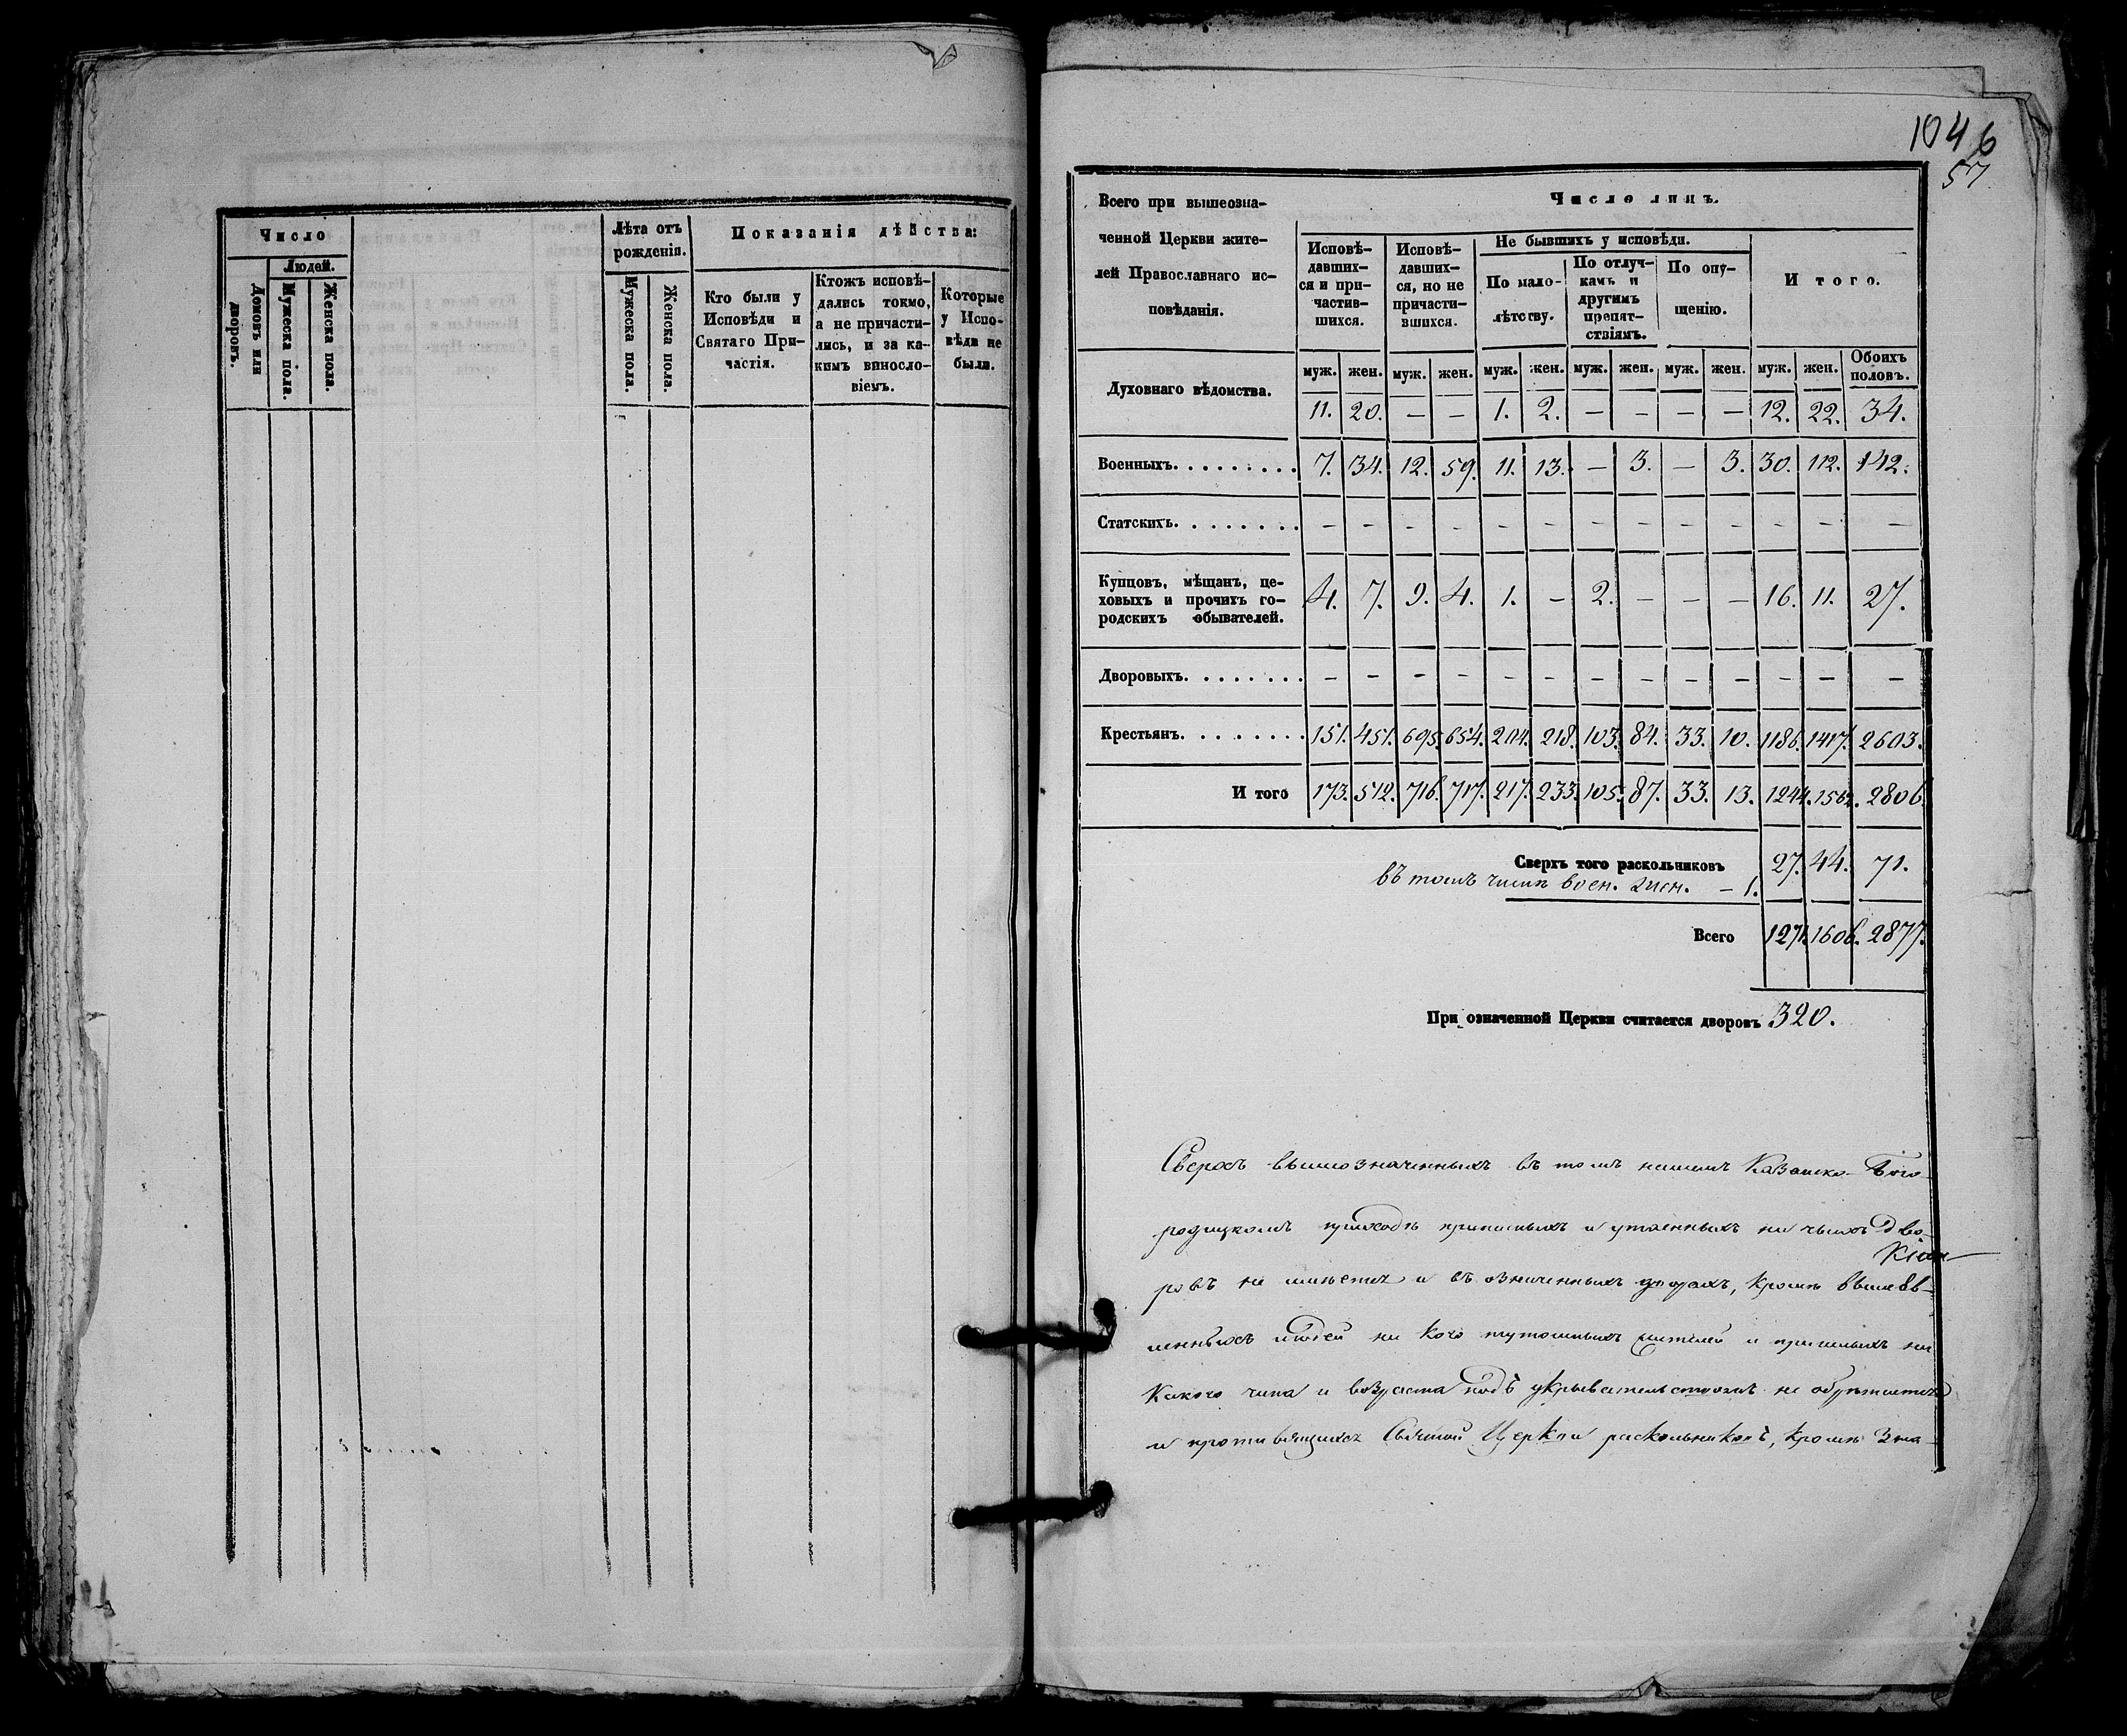 Число
Людей.
Домовъ или дворовъ.
Мужеска пола.
Женска пола.
Лѣта отъ рожденія.
Мужеска пола.
Женска пола.
Показанія дѣйства:
Кто были у Исповѣди и Святаго Причастія.
Ктожъ исповѣ-
дались токмо,
а не причасти-
лись, и за ка-
кимъ винносло-
віемъ.
Которые
у Испо-
вѣди не
были.
1046
57
Всего при вышеозна-
ченной Церкви жите-
лей Православнаго ис-
повѣданія.
Число лицъ.
Исповѣ-
давших-
ся и при-
частив-
шихся.
Исповѣ-
давших-
ся, но не
причасти-
вшихся.
Не бывшихъ у исповѣди.
По мало-
лѣтству.
По отлуч-
камъ и
другимъ
препят-
ствіямъ.
По опу-
щенію.
Итого.
муж. жен. муж. жен. муж. жен. муж. жен. муж. жен. муж. жен. Обоихъ половъ.
Духовнаго вѣдомства. 11. 20. — — 1. 2. — — — — 12. 22. 34.
Военныхъ. 7. 34. 12. 59. 11. 13. — 3. — 3. 30. 112. 142.
Статскихъ. — — — — — — — — — — — — —
Купцовъ, мѣщанъ, це-
ховыхъ и прочихъ го-
родскихъ обывателей. 4. 7. 9. 4. 1. — 2. — — — 16. 11. 27.
Дворовыхъ. — — — — — — — — — — — — —
Крестьянъ. 151. 451. 695. 654. 204. 218. 103. 84. 33. 10. 1186. 1417. 2603.
И того 173. 512. 716. 717. 217. 233. 105. 87. 33. 13. 1244. 1562. 2806.
Сверхъ того раскольниковъ 27. 44. 71.
въ томъ числѣ воен. — 1.
Всего 1271. 1606. 2877.
При означенной Церкви считается дворовъ 320.
Сверхъ вышеозначенныхъ въ томъ нашемъ Казанско-Бого-
родицкомъ приходѣ приписныхъ и утаенныхъ ни чьихъ дво-
ровъ не имѣется и въ означенныхъ дворахъ, кромѣ
людей ни кого тутошныхъ жителей и пришлыхъ ни
какого чина и возраста подъ укрывательствомъ не обрѣтается
и противящихся Святой Церкви раскольниковъ, кромѣ зна-